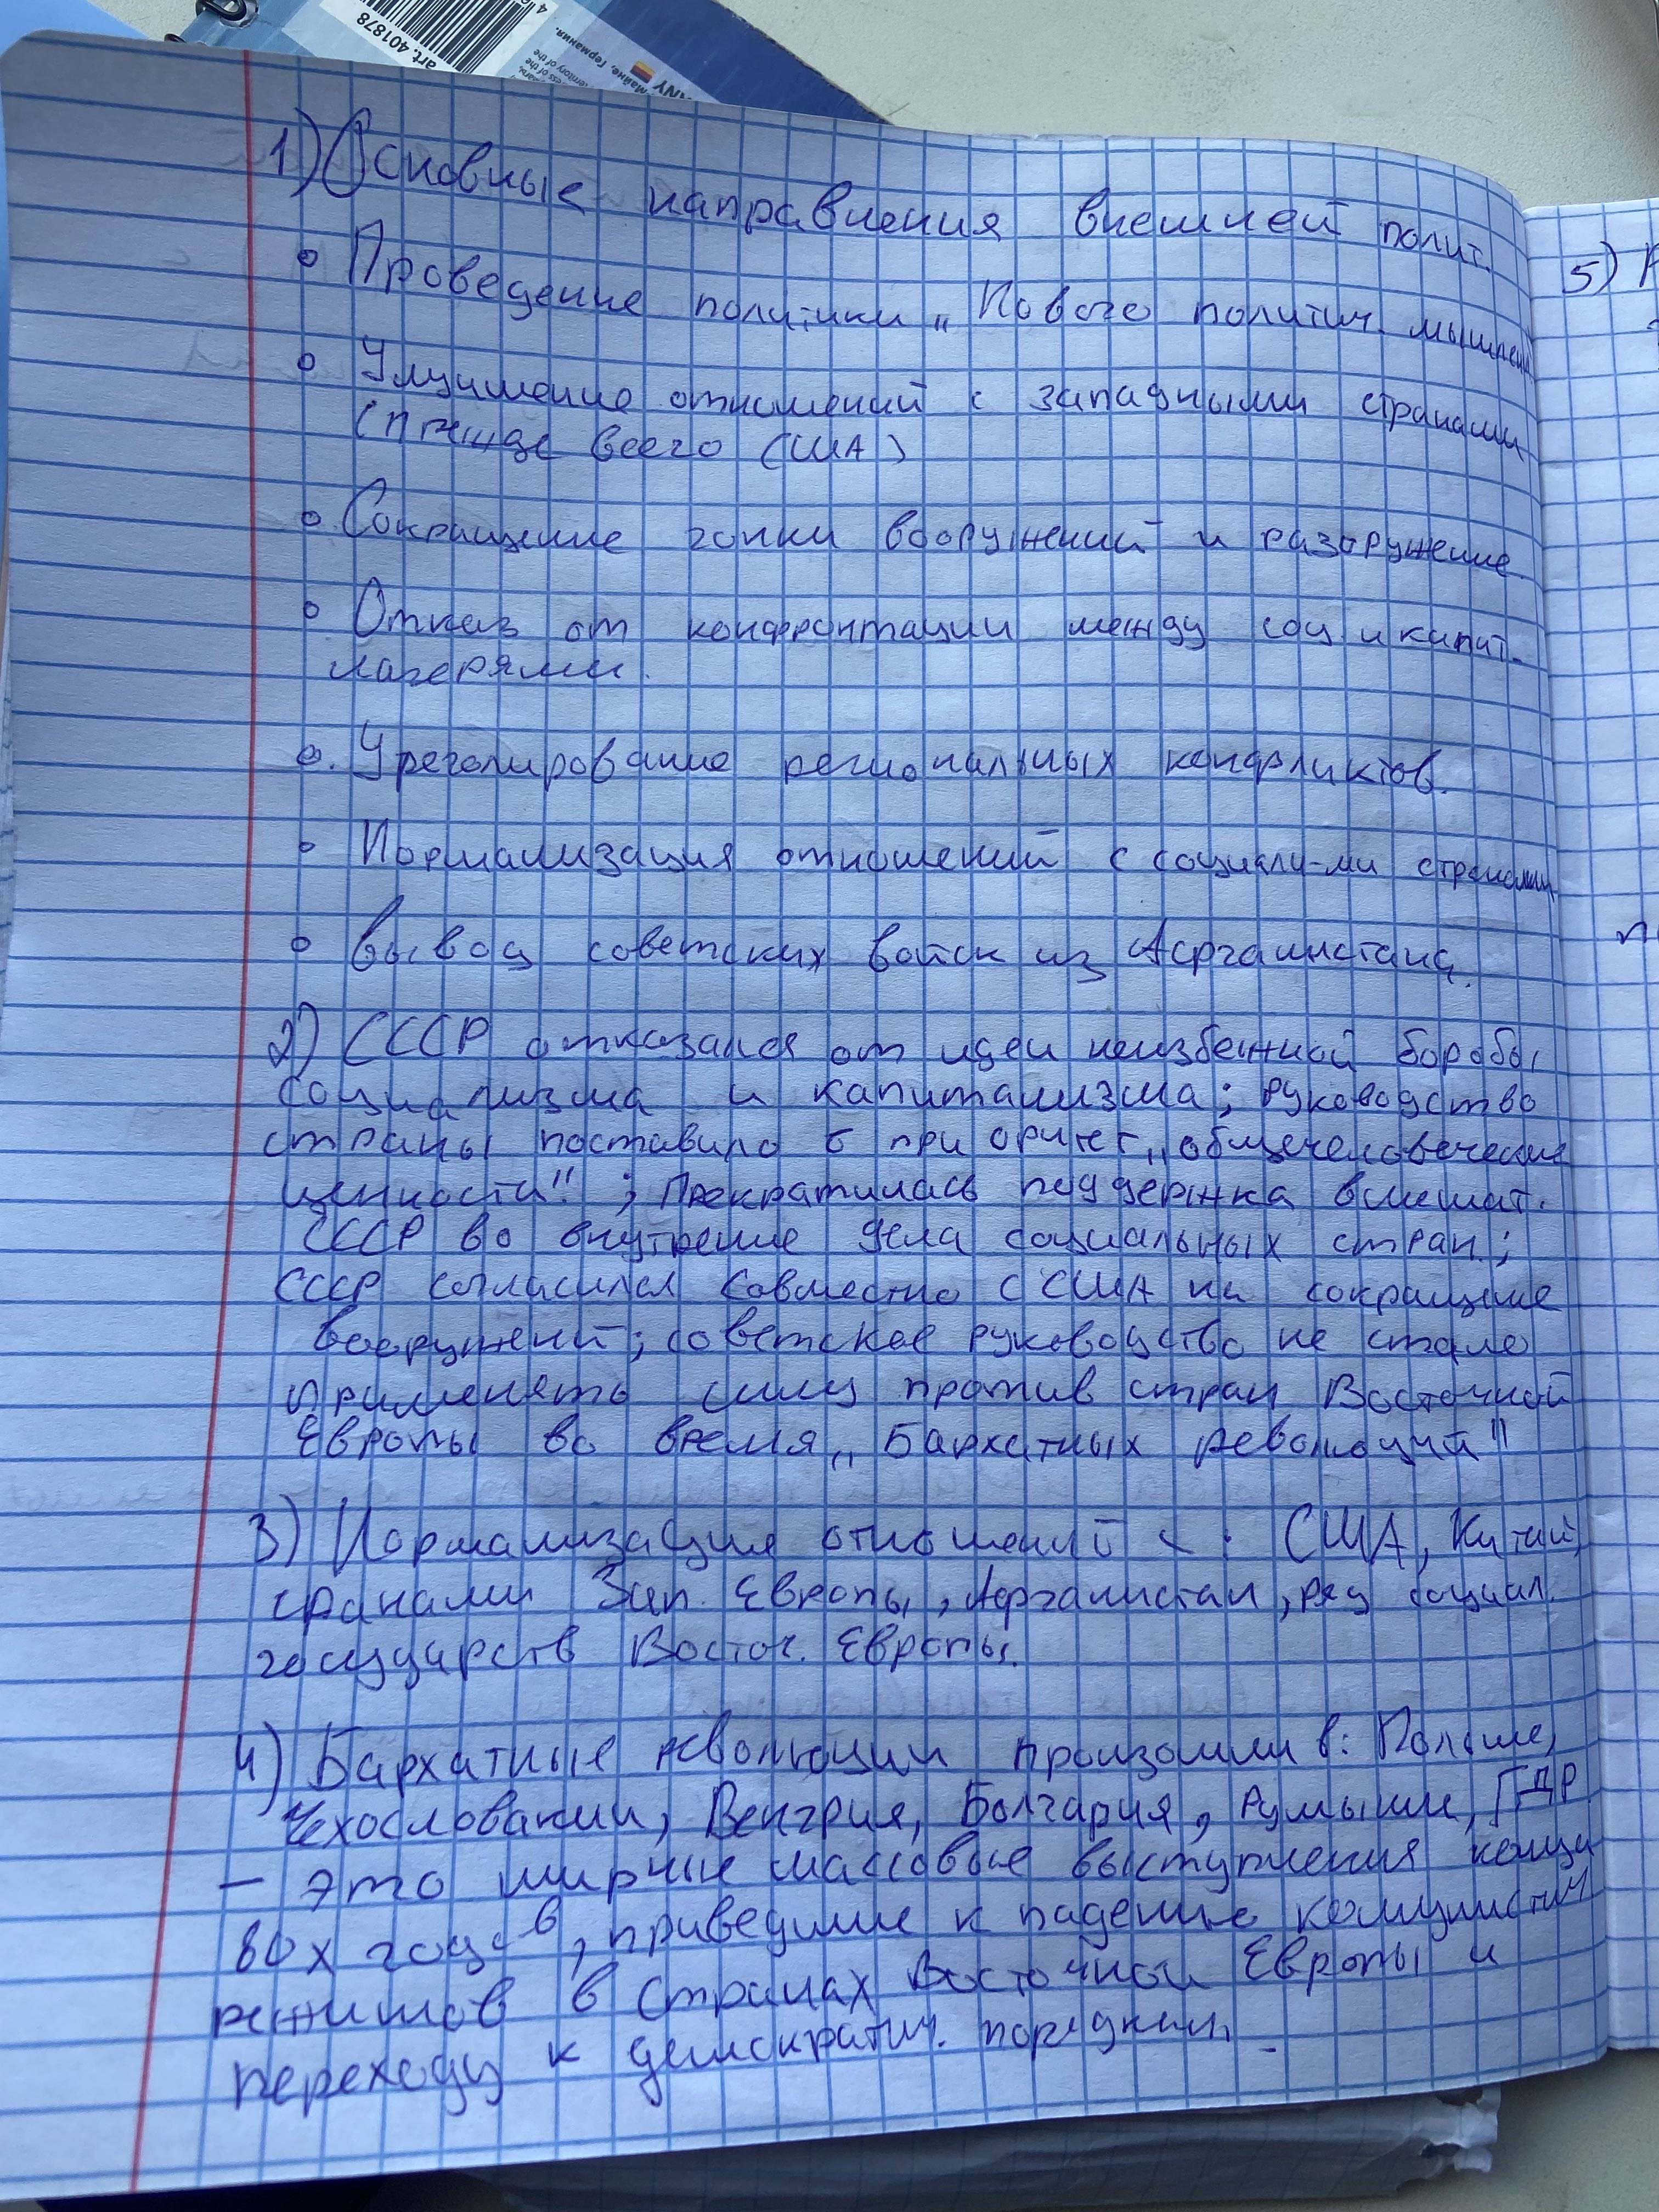 art. 401878
Майне, Германия.
1) Основные направления внешней полит.
◦ Проведение политики „Нового политич. мышлен
◦ Улучшение отношений с западными странами
(прежде всего США)
◦ Сокращение гонки вооружений и разоружение.
◦ Отказ от конфронтации между соц и капит.
лагерями.
◦. Урегулирование региональных конфликтов.
◦ Нормализация отношений с социали-ми странами
◦ Вывод советских войск из Афганистана.
2) СССР отказался от идеи неизбежной боробы
социализма и капитализма; руководство
страны поставило в приоритет „общечеловеческие
ценности"; Прекратилась поддержка вмешат.
СССР во внутрение дела социальных стран;
СССР согласился совместно с США на сокращение
вооружений; советское руководство не стало
применять силу против стран Восточной
Европы во время „Бархатных революций"
3) Нормализация отношений с: США, Китай,
сранами Зап. Европы, Афганистан, ряд социал.
государств Восточ. Европы.
4) Бархатные революции произошли в: Польше,
Чехословакии, Венгрия, Болгария, Румынии, ГДР
– это мирные массовые выступления конца
80х годов, приведшие к падению комунистич
режимов в странах Восточной Европы и
переходу к демократич. порядкам.
5)